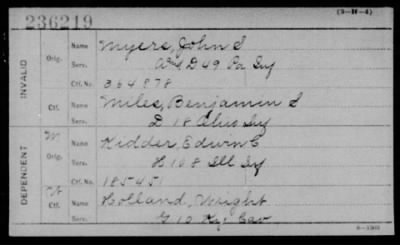 236219
(3-H-4)
INVALID
Orig.
Name Myers, John S
Serv. D 49 Pa Inf
Ctf. No. 364878
Ctf.
Name Miles, Benjamin S
Serv. D 18 Ohio Inf
DEPENDENT
Orig.
Name Kidder, Edwin E
Serv. H 108 Ill Inf
Ctf. No. 185451
Ctf.
Name Holland, Wright
Serv. G 10 Ky. Cav